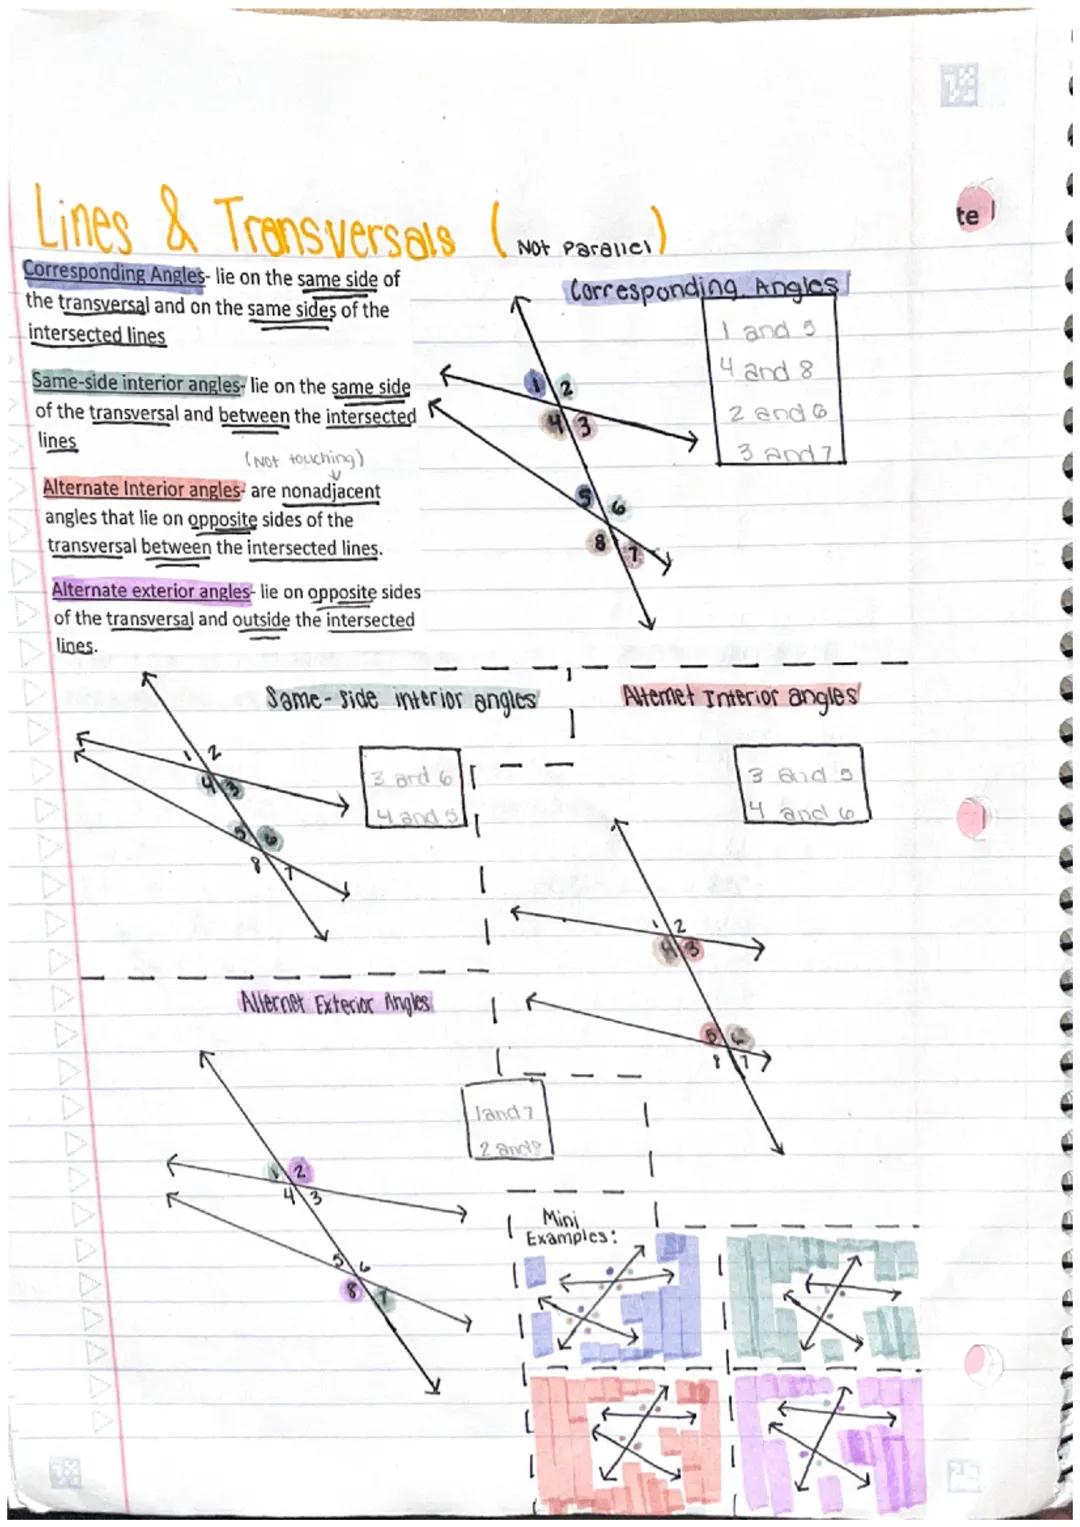 te
Lines & Transversals (Not Parallel)
Corresponding Angles- lie on the same side of
the transversal and on the same sides of the
intersected lines
Same-side interior angles- lie on the same side
of the transversal and between the intersected
lines
(Not touching)
Alternate Interior angles- are nonadjacent
angles that lie on opposite sides of the
transversal between the intersected lines.
Alternate exterior angles- lie on opposite sides
of the transversal and outside the intersected
lines.
Corresponding Angles
1 and 5
4 and 8
2 and 6
3 and 7
1 2
4 3
5 6
8 7
Same-side interior angles
3 and 6
4 and 5
1 2
4 3
5 6
8 7
Alternet Interior angles
3 and 5
4 and 6
1 2
4 3
5 6
8 7
Alternet Exterior Angles
1 and 7
2 and 8
1 2
4 3
5 6
8 7
Mini
Examples: